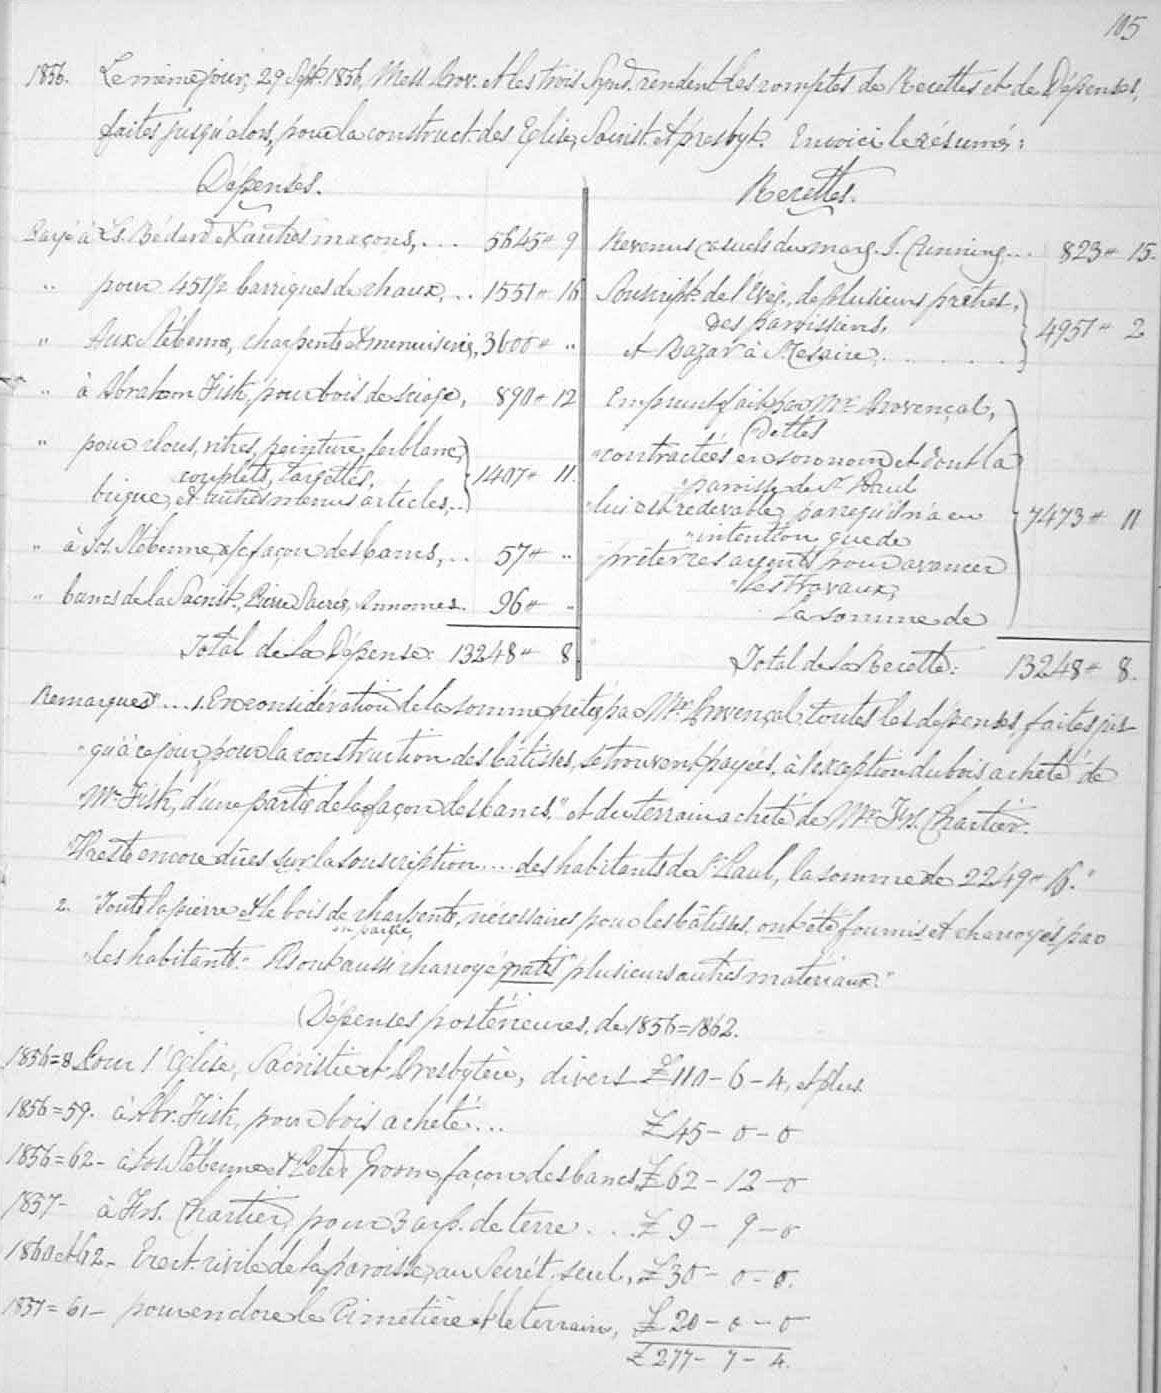 105
1856. Le même jour, 29 Sept. 1856, Mess. Prov. et les trois Synd. rendent les comptes de Recettes et de Dépenses,
faites jusqu'alors, pour la construct. des Eglise, Sacrist. et presbyt. En voici le résumé:
Dépenses.
Payé à Ls. Bédard & autres maçons, ... 5645# 9
" pour 451 1/2 barriques de chaux, .. 1551# 16
" Aux Stébenne, charpente et menuiserie, 3600# "
" à Abraham Fisk, pour bois de sciage, 890# 12
" pour clous, vitres, peinture, ferblanc,
couplets, targettes,
brique, et autres menus articles, .. 1407# 11.
" à Jos. Stébenne, p/c façon des bancs, .. 57# "
" bancs de la Sacrist., Pierre Sacrée, Annonces. 96# "
Total de la Dépense: 13248# 8.
Recettes.
Revenus casuels du marg. J. Cunning... 823# 15.
Souscript. de l'Evêq., de plusieurs prêtres,
des paroissiens,
et Bazar à Mésaire, . . . . . . 4951# 2
Emprunt fait par Mr. Provençal,
Dettes
"contractées en son nom et dont la
"paroisse de St. Paul
"lui est redevable, parcequ'il n'a eu
"intention que de
"prêter ces argents pour avancer
"les travaux,
La somme de 7473# 11
Total de la Recette: 13248# 8.
Remarques "... 1. En considération de la somme prêtée par Mr. Provençal, toutes les dépenses faites jus-
"qu'à ce jour, pour la construction des bâtisses, se trouvent payées, à l'exception du bois acheté de
"Mr. Fisk, d'une partie de la façon des bancs," et du terrain acheté de Mr. Frs. Chartier.
"Il reste encore dûes sur la souscription.... des habitants de St. Paul, la somme de 2249# 16."
2. "Toute la pierre et le bois de charpente, nécessaires pour les bâtisses, ont été fournis et charroyés par
en partie,
"les habitants." Ils ont aussi charroyé gratis "plusieurs autres matériaux."
Dépenses postérieures, de 1856=1862.
1856=8. Pour l'Eglise, Sacristie et Presbytère, divers £110-6-4, et plus
1856=59. à Abr. Fisk, pour bois acheté... £45-0-0
1856=62- à Jos. Stébenne & Peter Groom, façon des bancs, £62-12-0
1857- à Frs. Chartier, pour 3 arp. de terre . . . £9-9-0
1860 et 62- Erect. civile de la paroisse, au Secrét. seul, £30-0-0.
1857=61- pour enclore le Cimetière et le terrain, £20-0-0
£277-7-4.